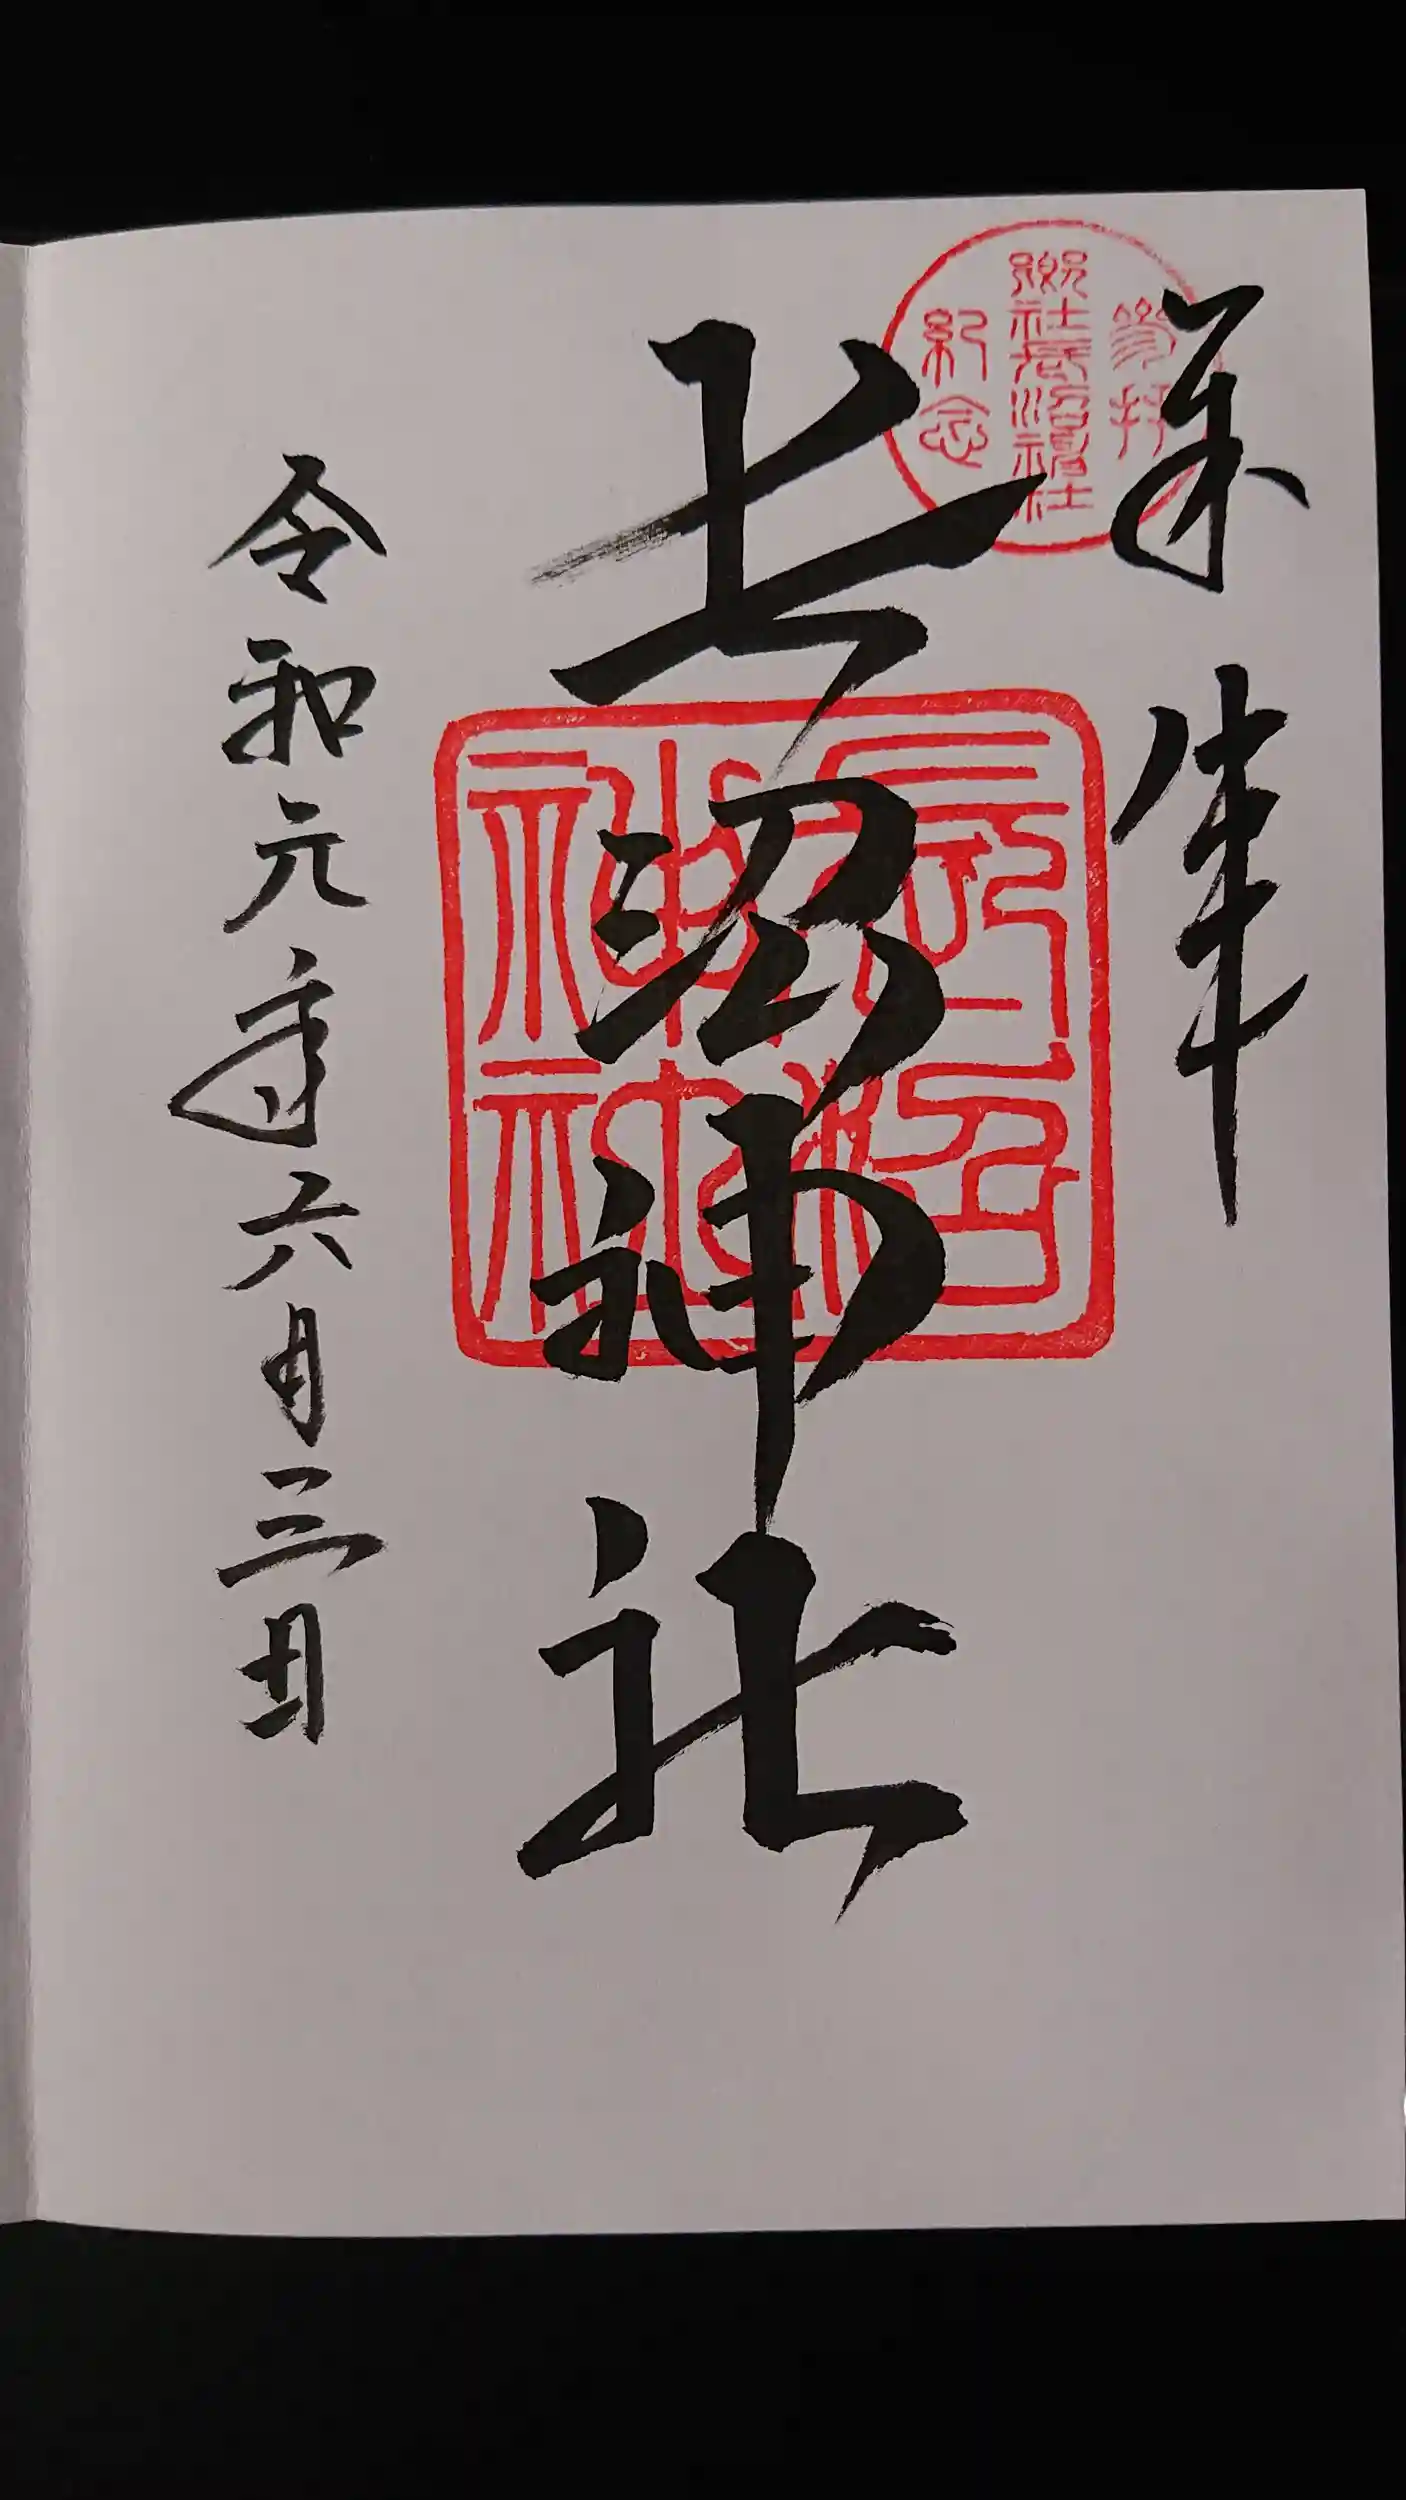 参拝
参拝
郷社長沼神社
紀念
長沼神社
長沼
神社
令和元年六月三日